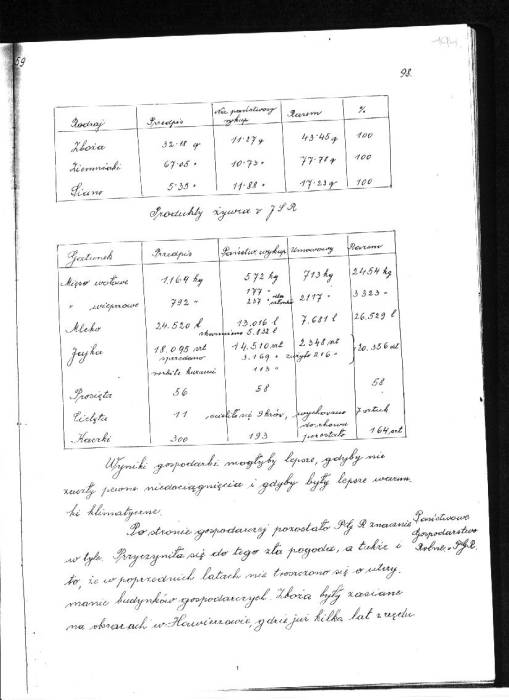 59
98.
Rodzaj Przedpis Na państwowy wykup Razem %
Zboża 32·18 q 11·27 q 43·45 q 100
Ziemniaki 67·05 " 10·73 " 77·78 q 100
Siano 5·35 " 11·88 " 17·23 q 100
Produkty żywca v JSR
Gatunek Przedpis Państw. wykup Umowowy Razem
Mięso wołowe 1.164 kg 572 kg 713 kg 2454 kg
177 "
" wieprzowe 792 " 237 " 2117 " 3323 "
Mleko 24.520 l 13.016 l 7.681 l 26.529 l
skarmiono 5.832 l
Jajka 18.095 szt 14.510 szt 2.348 szt 20.356 szt
sprzedano 3.169 " zużyto 216 "
113 "
Prosięta 56 58 58
Cielęta 11 ocieliło się 9 krów, wychowano 7 sztuk
do chowu
Kaczki 300 193 pozostało 164 szt
Wyniki gospodarki mogłyby lepsze, gdyby nie
zaszły pewne niedociągnięcia i gdyby były lepsze warun
ki klimatyczne.
Po stronie gospodarczej pozostało PG R znacznie
w tyle. Przyczyniła się do tego zła pogoda, a także i
to, że w poprzednich latach nie troszczono się o utrzy.
manie budynków gospodarczych. Zboża były zasiane
na obszarach w Hawierzowie, gdzie już kilka lat z rzędu
Państwowe
Gospodarstwo
Rolne, PGR.